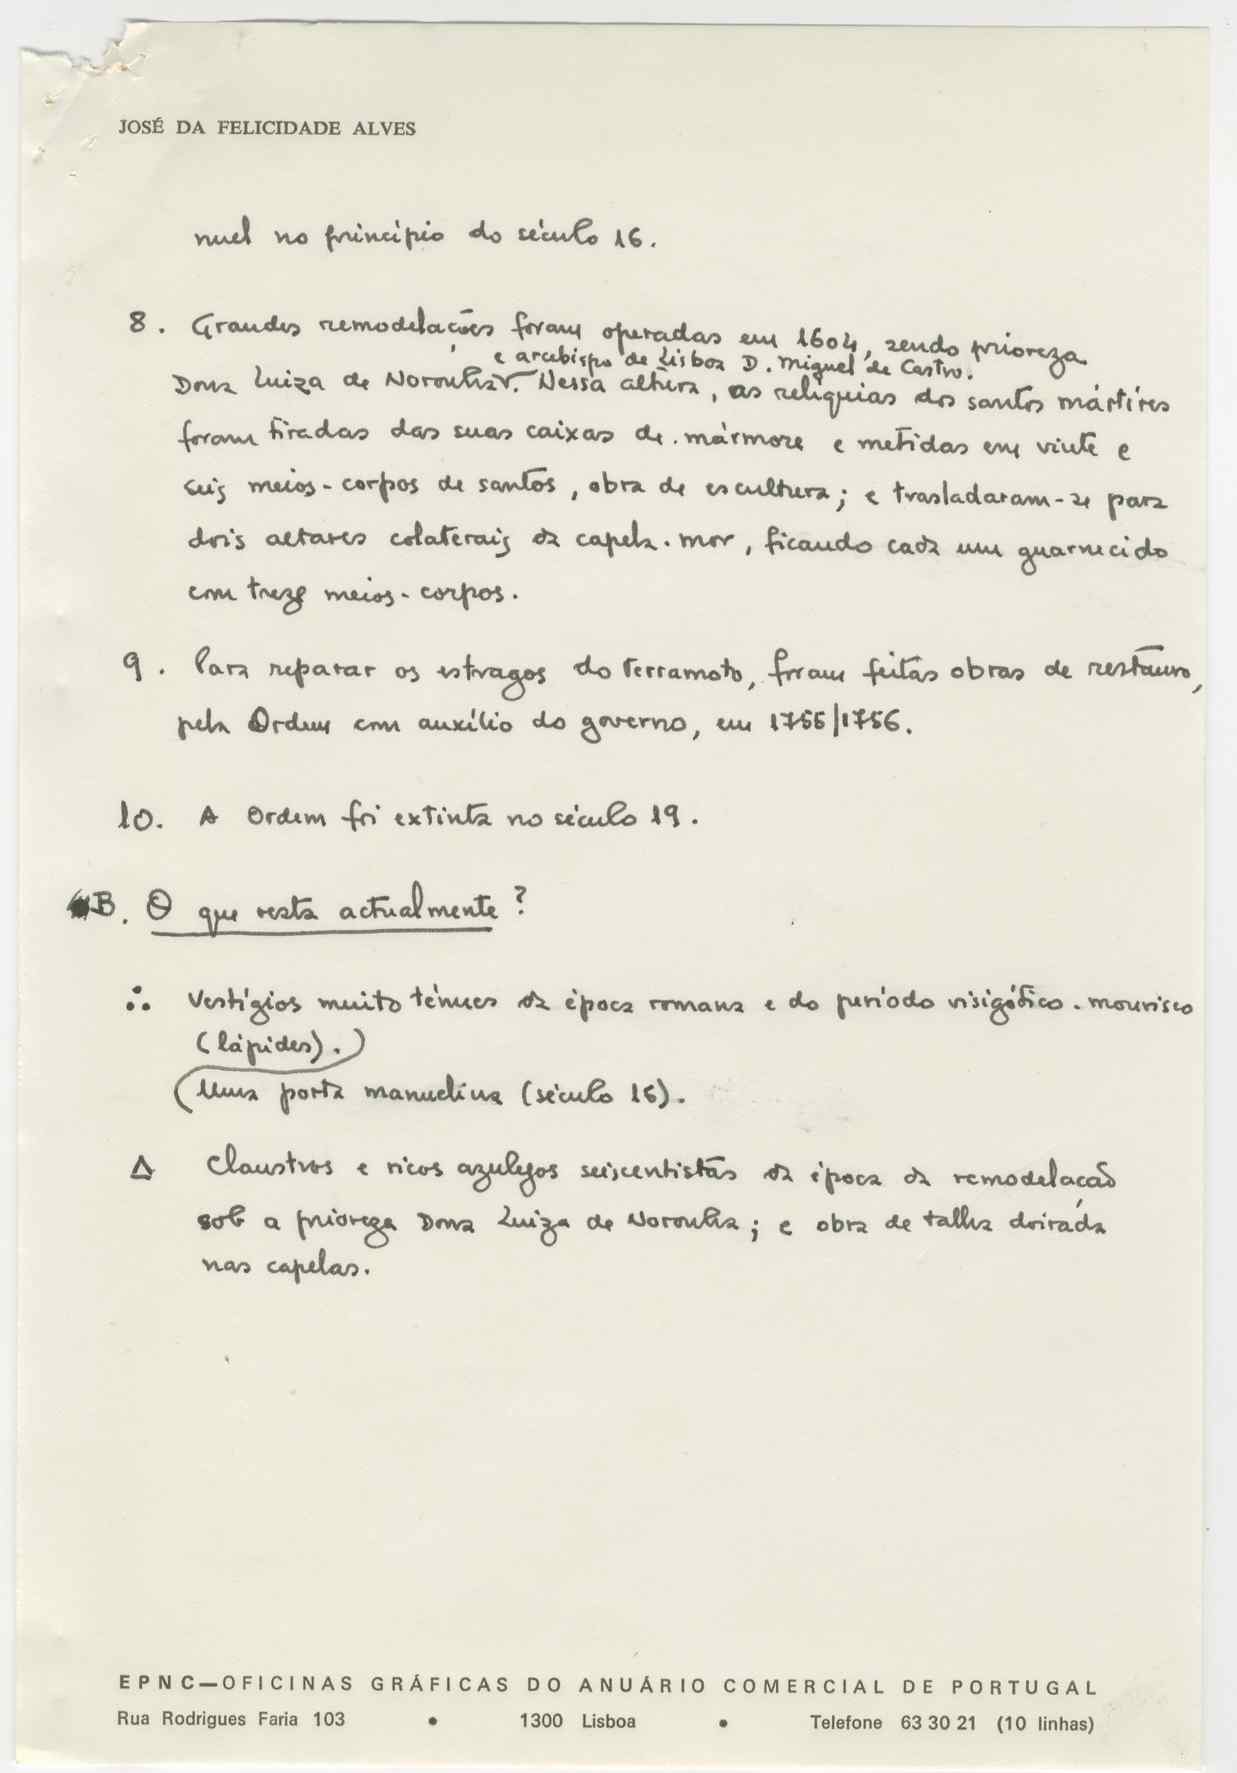 JOSÉ DA FELICIDADE ALVES
nuel no princípio do século 16.
8. Grandes remodelações foram operadas em 1604, sendo prioreza
e arcebispo de Lisboa D. Miguel de Castro.
Dona Luiza de Noronha. Nessa altura, as relíquias dos santos mártires
foram tiradas das suas caixas de mármore e metidas em vinte e
seis meios-corpos de santos, obra de escultura; e trasladaram-se para
dois altares colaterais da capela-mor, ficando cada um guarnecido
com treze meios-corpos.
9. Para reparar os estragos do terramoto, foram feitas obras de restauro,
pela Ordem com auxílio do governo, em 1755/1756.
10. A Ordem foi extinta no século 19.
B. O que resta actualmente?
∴ Vestígios muito ténues da época romana e do período visigótico-mourisco
(lápides).
Uma porta manuelina (século 16).
Δ Claustros e ricos azulejos seiscentistas da época da remodelação
sob a prioreza Dona Luiza de Noronha; e obra de talha doirada
nas capelas.
EPNC—OFICINAS GRÁFICAS DO ANUÁRIO COMERCIAL DE PORTUGAL
Rua Rodrigues Faria 103 • 1300 Lisboa • Telefone 63 30 21 (10 linhas)